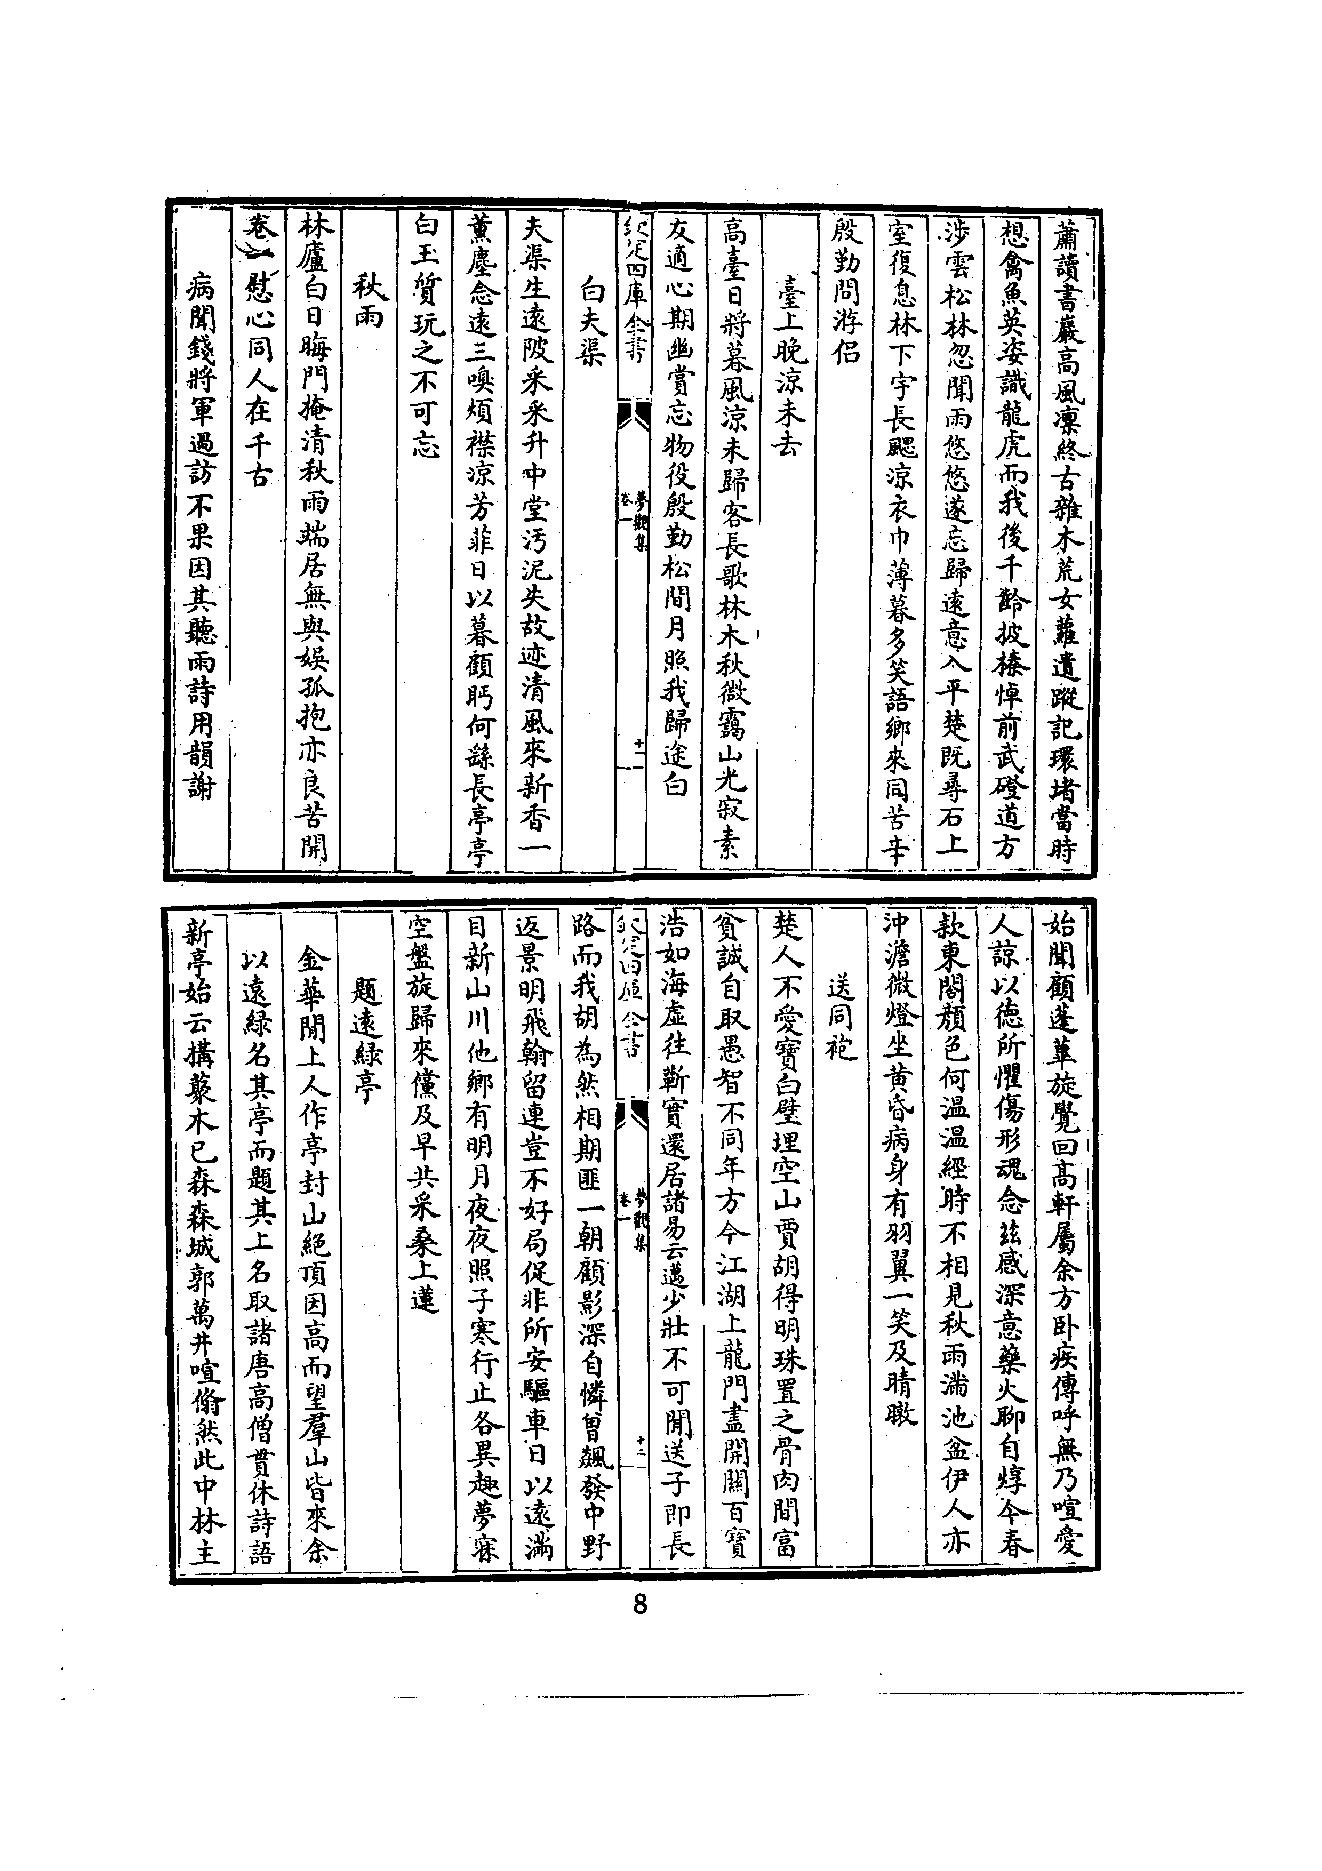 蕭讀書巖高風凛終古雜木荒女蘿遺蹤記環堵當時
想禽魚英姿識龍虎而我後千齡披榛悼前武磴道方
涉雲松林忽聞雨悠悠遂忘歸遠意入平楚既尋石上
室復息林下宇長颸涼衣巾薄暮多笑語鄉來同苦辛
殷勤問游侣
臺上晚涼未去
高臺日將暮風涼未歸客長歌林木秋微靄山光寂素
友適心期幽賞忘物役殷勤松間月照我歸途白
欽定四庫全書
夢觀集
卷一
十一
白夫渠
夫渠生遠陂采采升中堂汚泥失故迹清風來新香一
薰塵念遠三嗅煩襟涼芳菲日以暮顧眄何繇長亭亭
白玉質玩之不可忘
秋雨
林廬白日晦門掩清秋雨端居無與娱孤抱亦良苦開
卷一慰心同人在千古
病聞錢將軍過訪不果因其聽雨詩用韻謝
始聞顧蓬蓽旋覺回髙軒屬余方卧疾傳呼無乃喧愛
人諒以徳所懼傷形魂念兹感深意藥火聊自焞今春
款東閣顔色何温温經時不相見秋雨滿池盆伊人亦
沖澹微燈坐黄昏病身有羽翼一笑及晴暾
送同袍
楚人不愛寶白璧埋空山賈胡得明珠置之骨肉間富
貧誠自取愚智不同年方今江湖上龍門盡開關百寶
浩如海虛往靳實還居諸易云邁少壯不可閒送子即長
欽定四庫全書
夢觀集
卷一
十二
路而我胡為然相期匪一朝顧影深自憐曾飇發中野
返景明飛翰留連豈不好局促非所安驅車日以遠滿
目新山川他鄉有明月夜夜照子寒行止各異趣夢寐
空盤旋歸來儻及早共采桑上蓮
題遠緑亭
金華閒上人作亭封山絶頂因高而望羣山皆來余
以遠緑名其亭而題其上名取諸唐高僧貫休詩語
新亭始云搆藂木已森森城郭萬井喧翛然此中林主
8